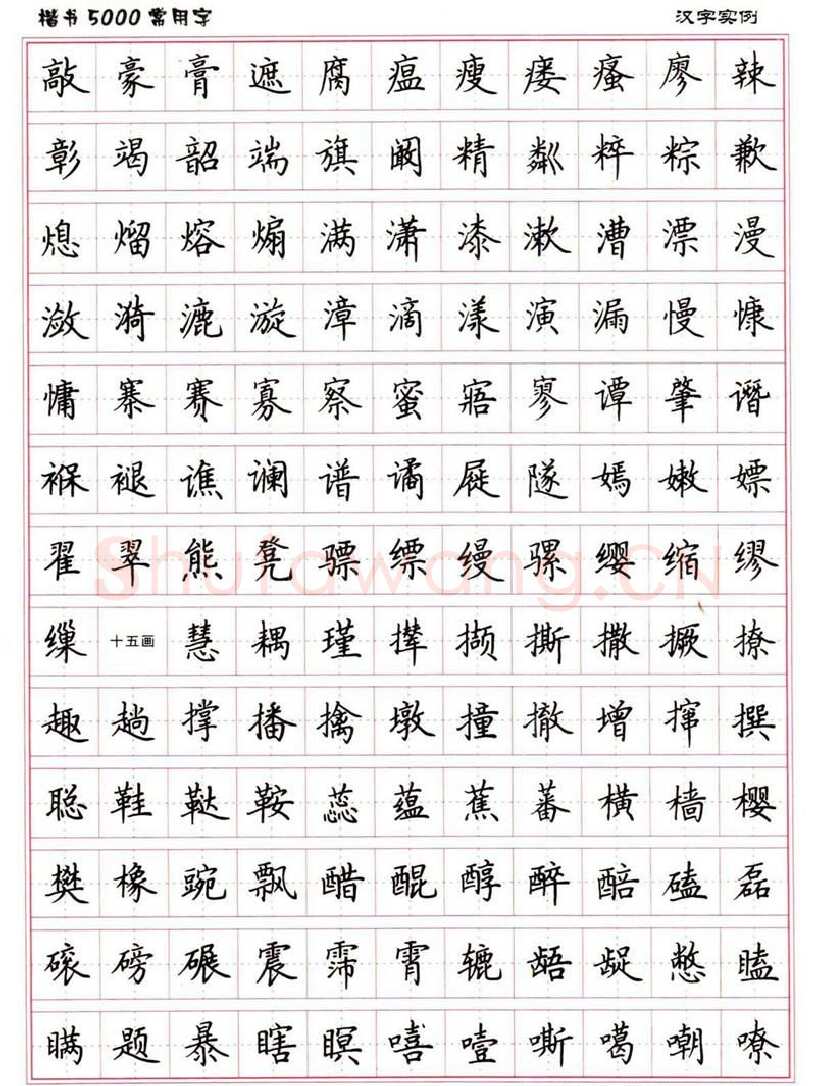 楷书5000常用字 汉字实例
敲豪膏遮腐瘟瘦瘘瘙廖辣
彰竭韶端旗阚精粼粹粽歉
熄熘熔煽满潇漆漱漕漂漫
潋漪漉漩漳滴漾演漏慢慷
慵寨赛寡察蜜寤寥谭肇谮
褓褪谯谰谱谲屣隧嫣嫩嫖
翟翠熊凳骠缥缦骡缨缩缪
缫十五画慧耦瑾撵撷撕撒撅撩
趣趟撑播擒墩撞撤增撺撰
聪鞋鞑鞍蕊蕴蕉蕃横樯樱
樊橡豌飘醋醌醇醉醅磕磊
磙磅碾震霈霄辘龉龊憋瞌
瞒题暴瞎瞑嘻噎嘶噶嘲嘹
Shufawang.CN